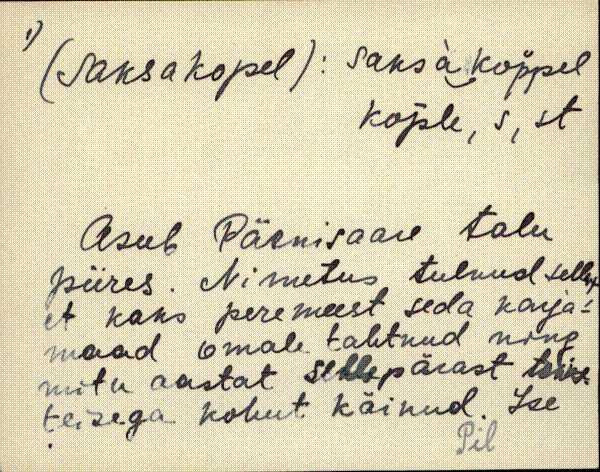 1)
(Saksakopel): saksà koppel
kople, s, st
Asub Pärnisaare talu
piires. Nimetus tulnud sellest
et kaks peremeest seda karja-
maad omale tahtnud ning
mitu aastat sellepärast teine
teisega kohut käinud. Ise
Pil